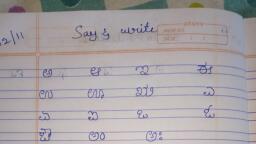 2/11
Say & write
ಅ ಆ ಇ ಈ
ಉ ಊ ಋ ಎ
ಏ ಐ ಒ ಓ
ಔ ಅಂ ಅಃ